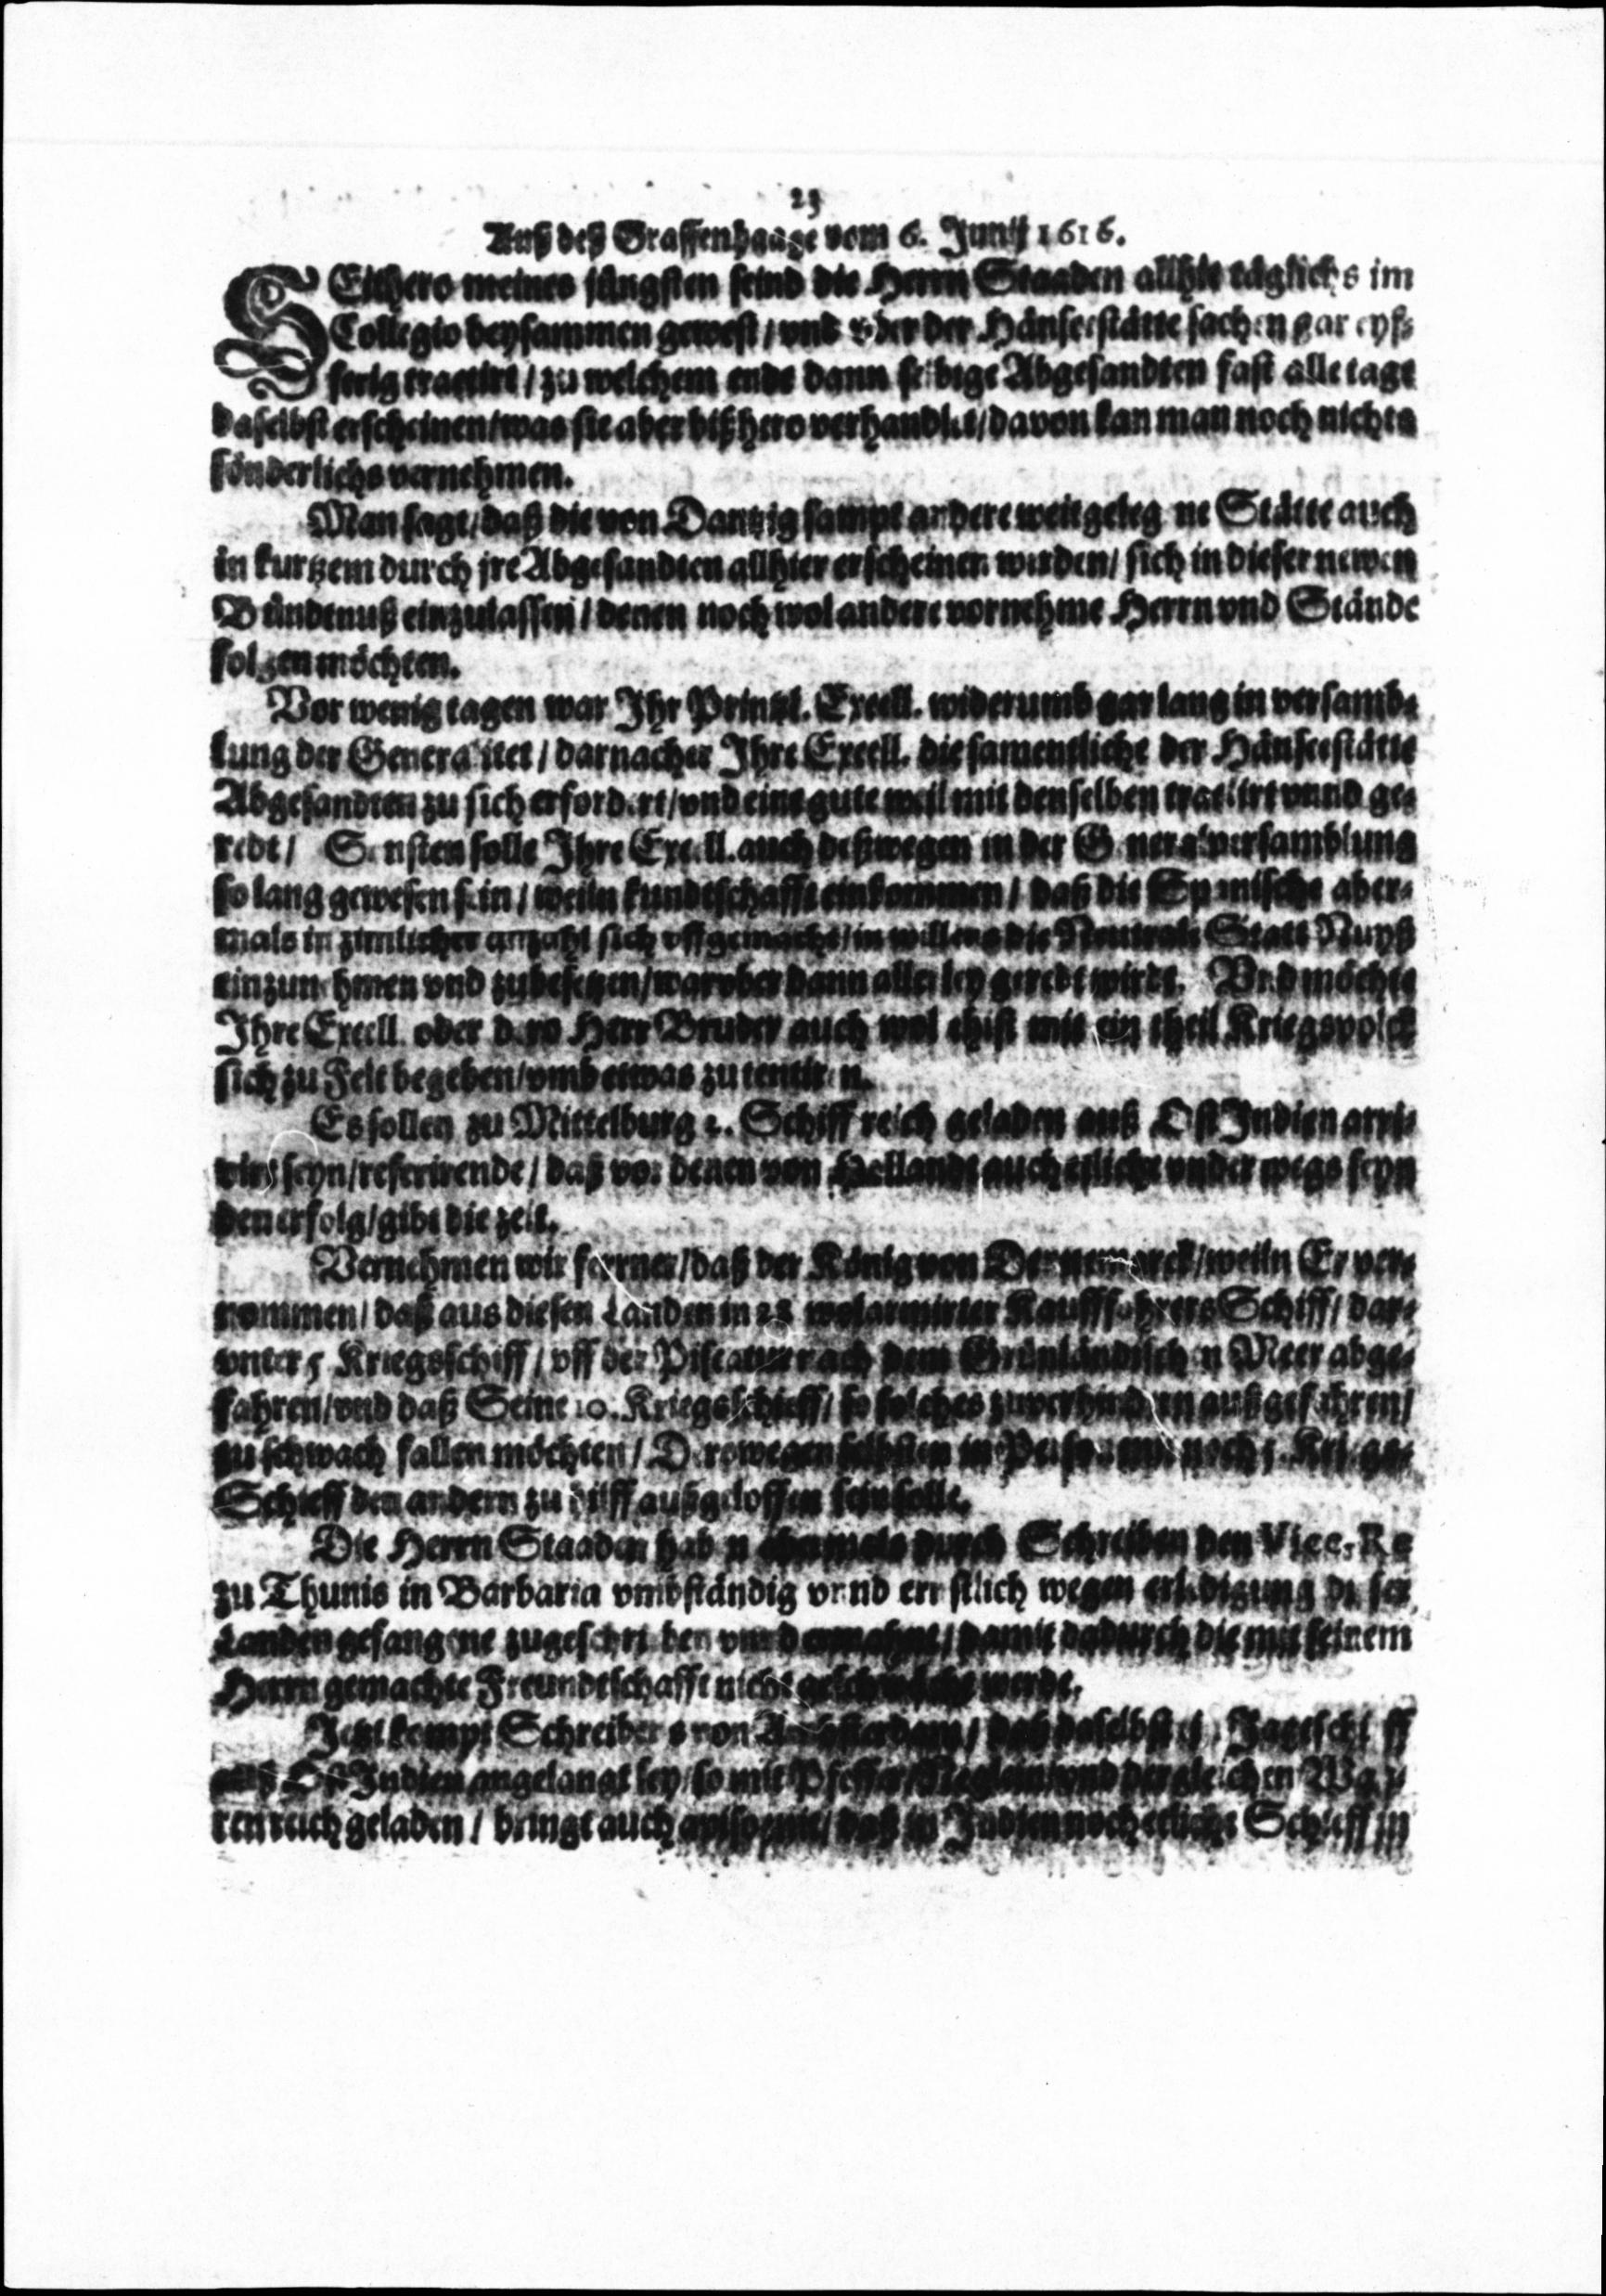 23
Auß deß Graffenhaage vom 6. Junij 1616.
SEithero meines jüngsten seind die Herrn Staaden allhie täglichs im
Collegio beysammen gewest / vnd vber der Hänseestätte sachen gar eyf-
ferig tractirt / zu welchem ende dann selbige Abgesandten fast alle tage
daselbst erscheinen/was sie aber bißhero verhandlet/davon kan man noch nichts
sönderlichs vernehmen.
Man sagt/daß die von Dantzig sampt andere weitgelegne Stätte auch
in kurtzem durch jre Abgesandten allhier erscheinen werden/ sich in dieser newen
Bündtnuß einzulassen / denen noch wol andere vornehme Herrn vnd Stände
folgen möchten.
Vor wenig tagen war Ihr Printzl. Excell. widerumb gar lang in versamb-
lung der Generalitet / darnacher Ihre Excell. die samentliche der Hänseestätte
Abgesandten zu sich erfordert/vnd eine gute weil mit denselben tractirt vnnd ge-
redt / Sonsten solle Ihre Excell. auch deßwegen in der Generalversamblung
so lang gewesen sein / weiln kundtschafft einkommen / daß die Spanische aber-
mals in zimlicher anzahl sich vffgemacht/in willens die Neutrale Statt Nuyß
einzunehmen vnd zubesetzen/warvber dann allerley geredt wirdt. Vnd möchte
Ihre Excell. oder dero Herr Bruder auch wol ehist mit ein theil Kriegsvolck
sich zu Felt begeben/vmb etwas zu tentiren.
Es sollen zu Mittelburg 2. Schiff reich geladen aus Ost Indien arri-
virt seyn/referirende / daß vor denen von Hollandt auch etliche vnder wegs seyn
den erfolg/gibt die zeit.
Vernehmen wir ferrner/daß der König von Dennemarck/weiln Er ver-
nommen / daß aus diesen Landen in 28 wolarmirter Kauffahrers Schiff / dar-
vnter 5 Kriegsschiff / vff der Piscatur nach dem Grünländischen Meer abge-
fahren/vnd daß Seine 10. Kriegsschieff / so solches zuverhindern außgefahren/
zu schwach fallen möchten / Derowegen selbsten in Person mit noch Kriegs-
Schieff den andern zu hülff außgeloffen sein solle.
Die Herrn Staaden haben abermals durch Schreiben den Vice-Re
zu Thunis in Barbaria vmbständig vnnd ernstlich wegen erledigung dieser
Landen gefangene zugeschrieben vnnd ermahnt / damit dadurch die mit seinem
Herrn gemachte Freundtschafft nicht geschwächt werde.
Jetzt kompt Schreiben von Ambsterdam / daß daselbst ein Jagtschiff
auß Ost Indien angelangt sey/so mit Pfeffer/Neglein vnd dergleichen Wah-
ren reich geladen / bringt auch daß in Indien noch etliche Schieff in